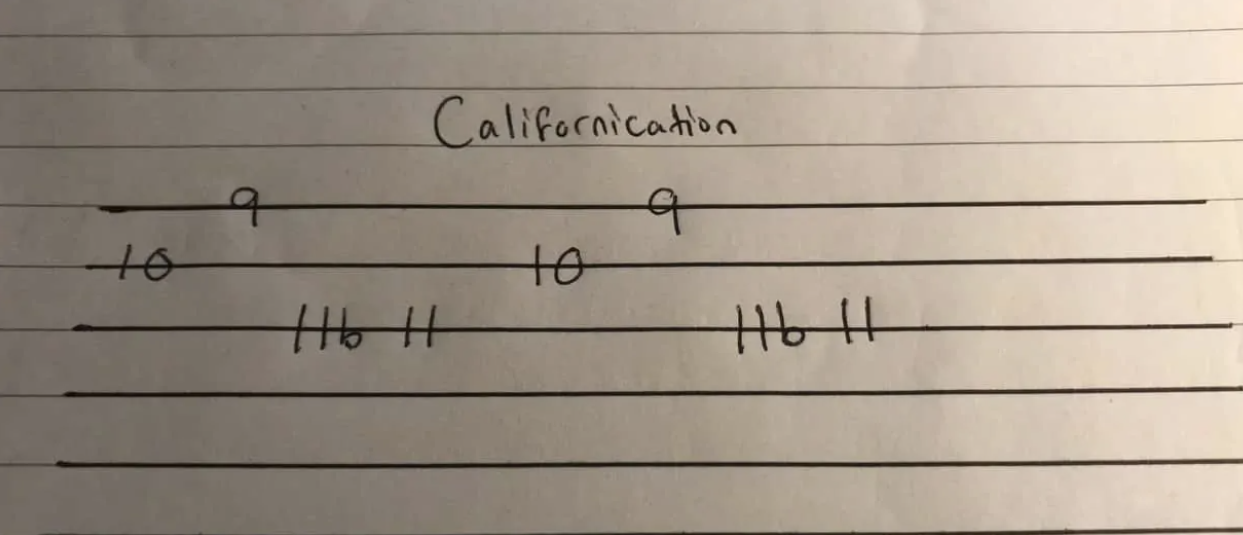 Californication
9 9
10 10
11b 11 11b 11